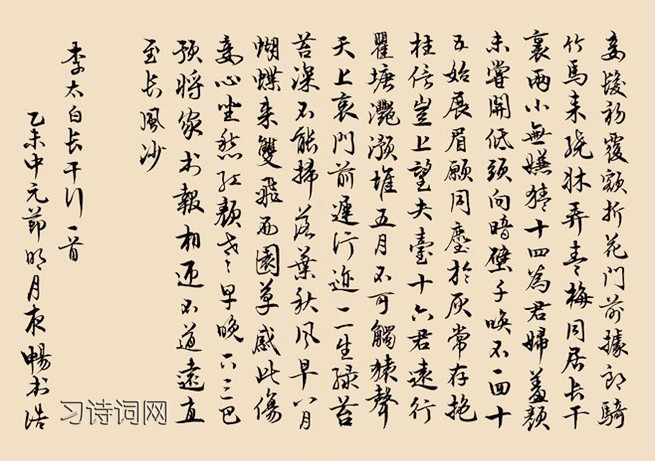 妾髮初覆額折花門前據郎騎
竹馬来繞牀弄青梅同居長干
裏兩小無嫌猜十四為君婦羞顔
未嘗開低頭向暗壁千喚不一回十
五始展眉願同塵於灰常存抱
柱信豈上望夫臺十六君遠行
瞿塘灩澦堆五月不可觸猿聲
天上哀門前遲行迹一一生緑苔
苔深不能掃落葉秋風早八月
蝴蝶来雙飛西園草感此傷
妾心坐愁紅顔老早晚下三巴
預將家書報相迎不道遠直
至長風沙
李太白長干行一首
乙未中元節明月夜暢書浩
习诗词网